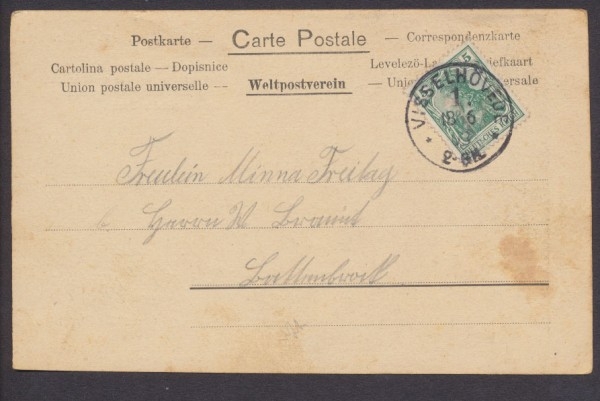 Postkarte — Carte Postale — Correspondenzkarte
Cartolina postale — Dopisnice
Levelezö-La efkaart
Union postale universelle -- Weltpostverein — Uni ersale
5
VISSELHÖVEDE
1.
18 6
2-3N.
Freulein Minna Freitag
Herrn W